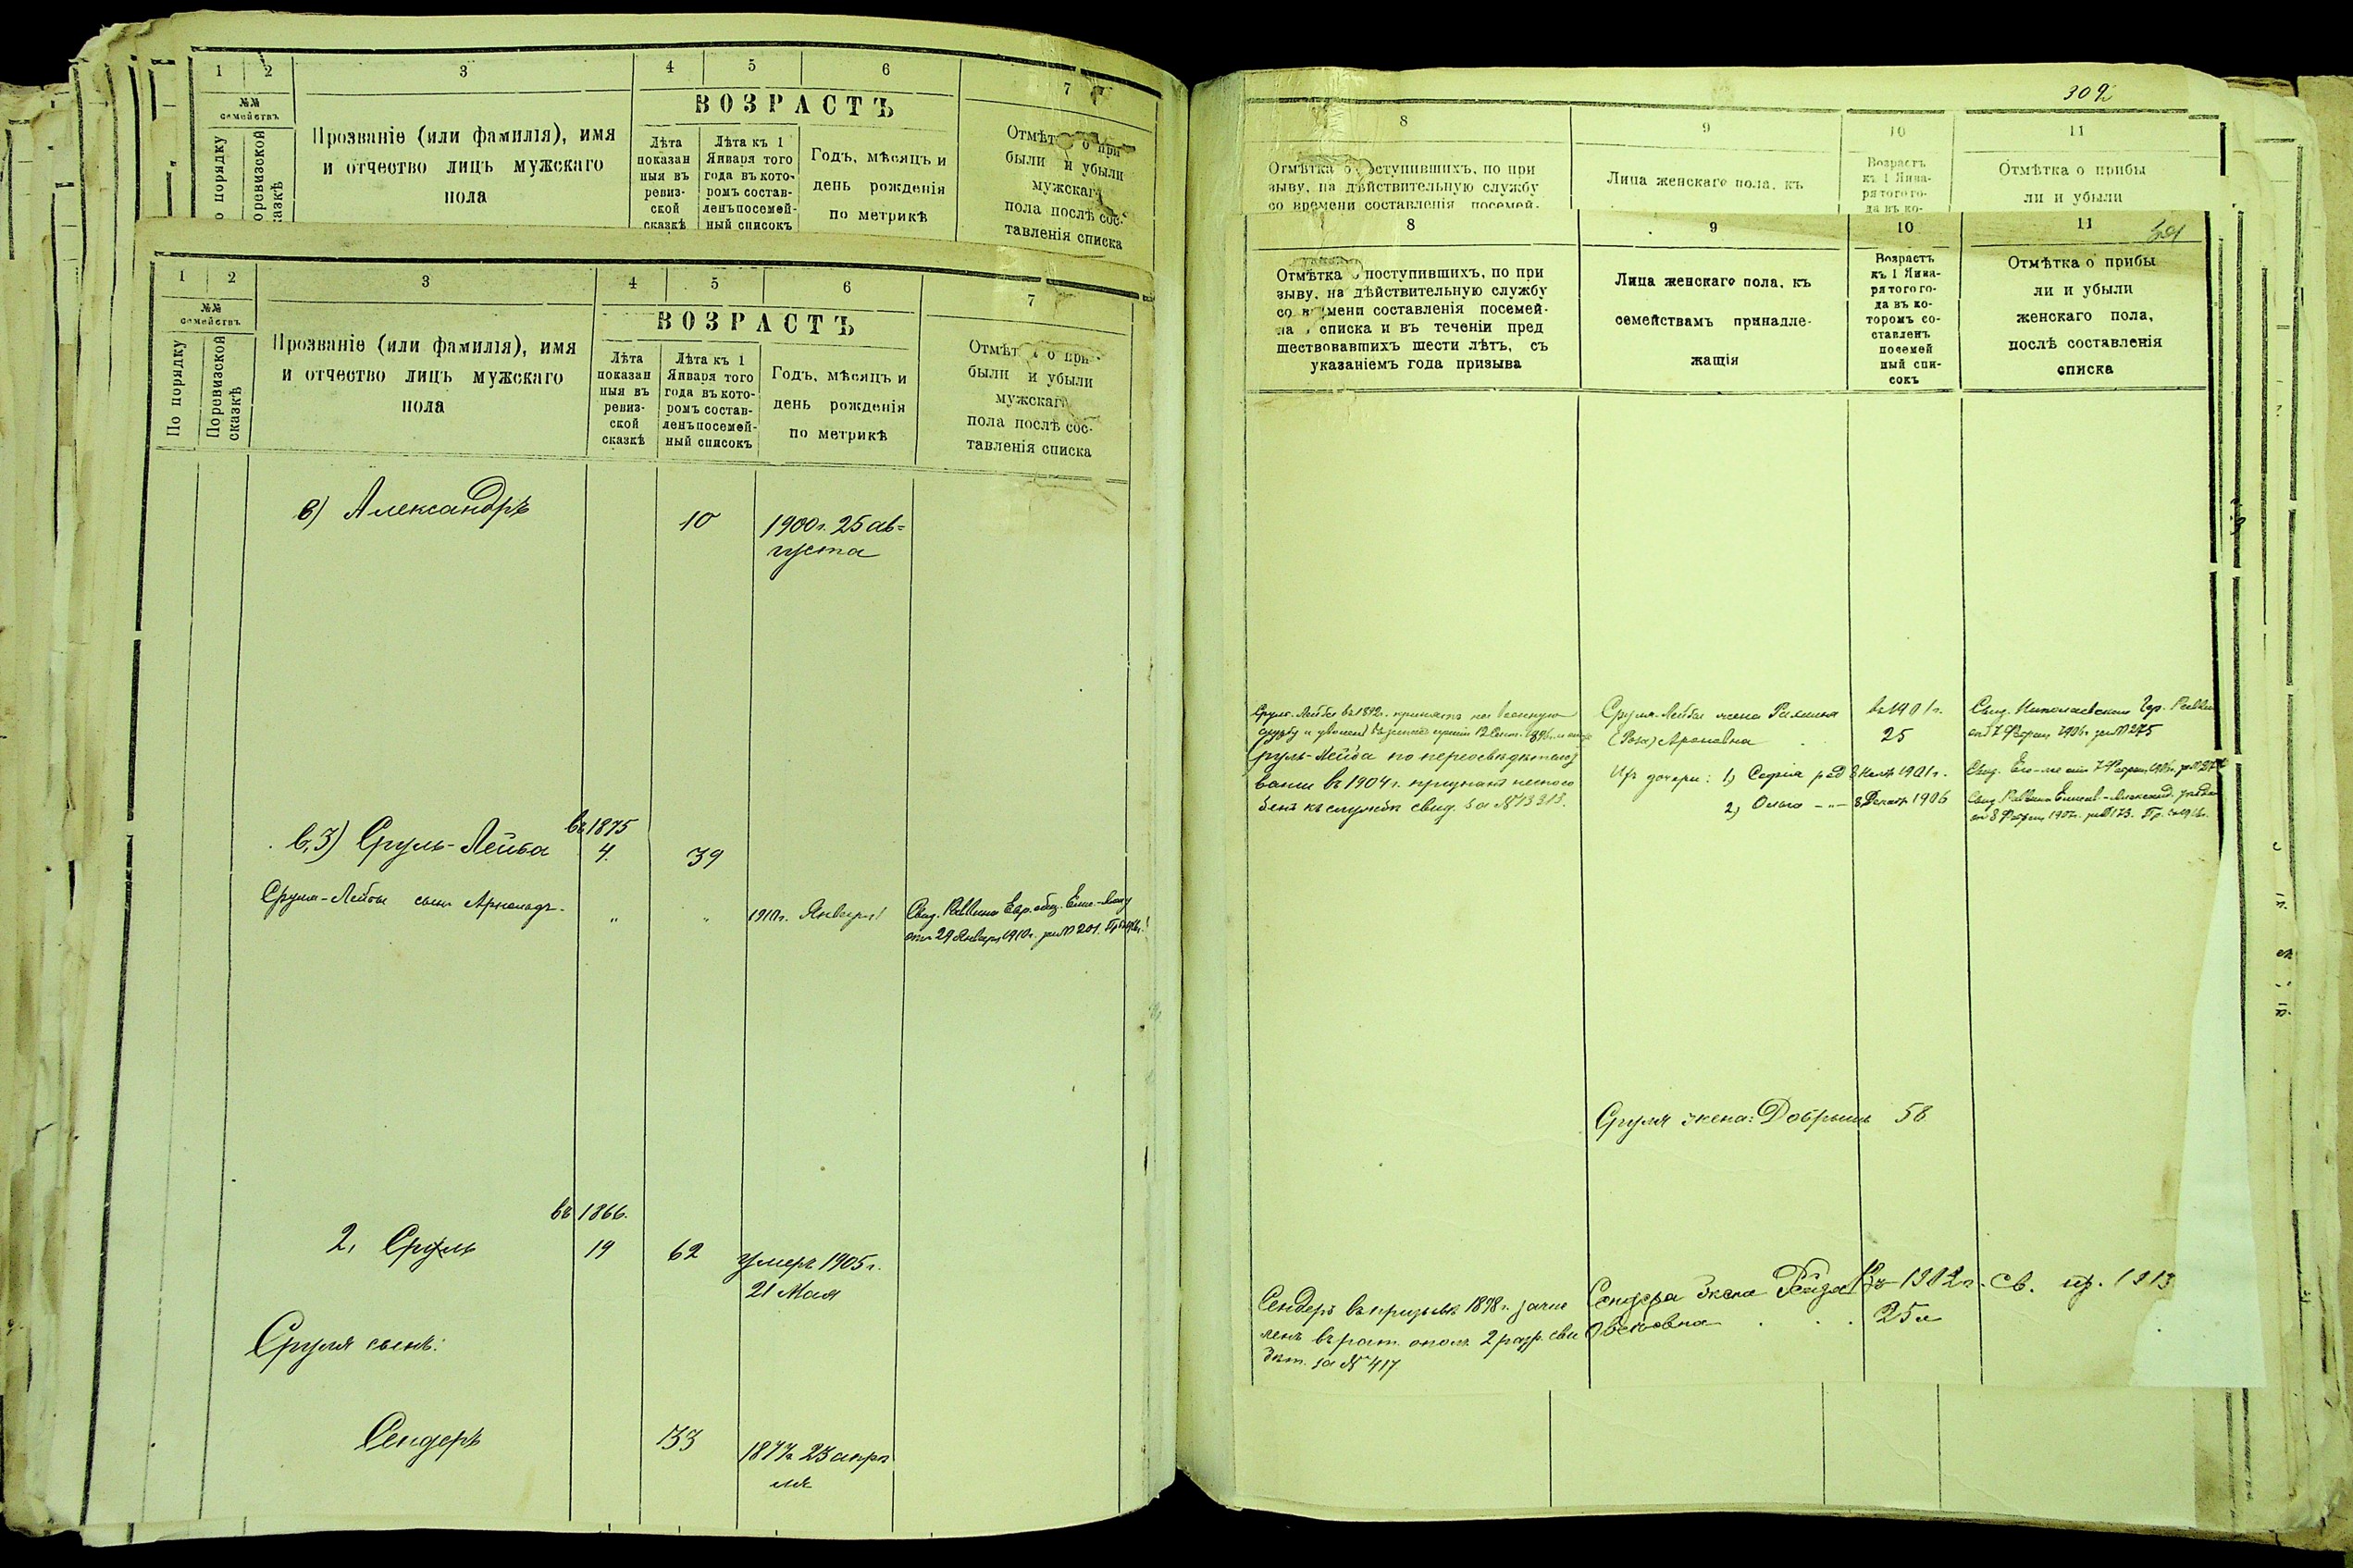 1 2 3 4 5 6 7
№№ семействъ
По порядку
Поревизской сказкѣ
Прозваніе (или фамилія), имя
и отчество лицъ мужскаго
пола
ВОЗРАСТЪ
Лѣта
показан
ныя въ
ревиз-
ской
сказкѣ
Лѣта къ 1
Января того
года въ кото-
ромъ состав-
ленъ посемей-
ный списокъ
Годъ, мѣсяцъ и
день рожденія
по метрикѣ
Отмѣт о при
были и убыли
мужскаг
пола послѣ сос-
тавленія списка
1 2 3 4 5 6 7
№№
семействъ
По порядку
Поревизской
сказкѣ
Прозваніе (или фамилія), имя
и отчество лицъ мужскаго
пола
ВОЗРАСТЪ
Лѣта
показан
ныя въ
ревиз-
ской
сказкѣ
Лѣта къ 1
Января того
года въ кото-
ромъ состав-
ленъ посемей-
ный списокъ
Годъ, мѣсяцъ и
день рожденія
по метрикѣ
Отмѣт о при-
были и убыли
мужскаг
пола послѣ сос-
тавленія списка
в) Александръ 10 1900 г. 25 ав=
густа
въ 1875
в, 3) Сруль-Лейба 4. 39
Сруля-Лейбы сынъ Арнольдъ. " " 1910 г. Января 1 Свид. Раввина Евр. общ. Елис.-
отъ 29 Января 1910 г. за № 201.
въ 1866.
2, Сруль 19 62 умеръ 1905 г.
21 Мая
Сруля сынъ:
Сендеръ 33 1877 г. 23 апрѣ
ля
302
8 9 10 11
Отмѣтка о поступившихъ, по при
зыву, на дѣйствительную службу
со времени составленія посемей-
Лица женскаго пола, къ
Возрастъ
къ 1 Янва-
ря того го-
да въ ко-
Отмѣтка о прибы
ли и убыли
8 9 10 11
Отмѣтка о поступившихъ, по при
зыву, на дѣйствительную службу
со времени составленія посемей-
на списка и въ теченіи пред
шествовавшихъ шести лѣтъ, съ
указаніемъ года призыва
Лица женскаго пола, къ
семействамъ принадле-
жащія
Возрастъ
къ 1 Янва-
ря того го-
да въ ко-
торомъ со-
ставленъ
посемей
ный спи-
сокъ
Отмѣтка о прибы
ли и убыли
женскаго пола,
послѣ составленія
списка
Сруль-Лейба въ 1892 г. принятъ на военную
службу и уволенъ въ
Сруль-Лейба по переосвидѣтельст
вованіи въ 1904 г. признанъ неспосо
бенъ къ службѣ свид. за № 13313.
Сруля-Лейбы жена въ 1901 г.
(Роза) Ароновна 25
Ихъ дочери: 1) Софія род 1901 г.
2) Ольга -"- 8 Декабр 1906
Свид. Николаевскаго Гор. Раввина
отъ 7 Феврал. 1906 г. за № 275
Свид. Его-же отъ 7 Феврал. 1906 г. за №
Свид. Раввина
отъ 8 Феврал. 1907 г. за № 173.
Сруля жена: Добрышъ 58
Сендеръ въ призывѣ 1898 г. зачис
ленъ въ рат. ополч. 2 разр. сви
дѣт. за № 417
Сендера жена Рейза въ 1902 г. Св. 1913
Овсеевна 25 л